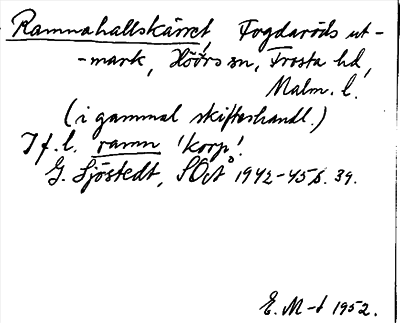 Ramnahallskärret, Fogdaröds ut-
-mark, Höörs sn, Frosta hd,
Malm. l.
(i gammal skifteshandl.)
I f. l. ramn 'korp'.
G. Sjöstedt, SOÅ 1942-45 s. 39.
E. M-d 1952.